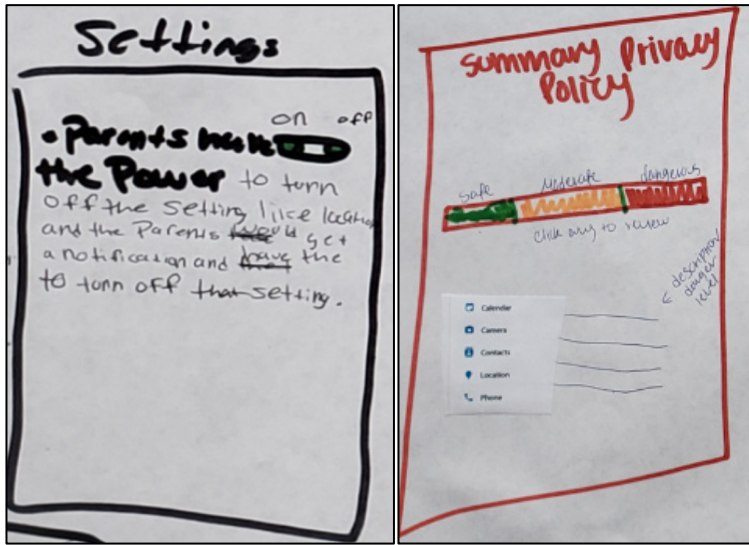 Settings
on off
• Parents have
the Power to turn
off the setting like location
and the Parents would get
a notification and have the
to turn off that setting.
Summary Privacy
Policy
safe Moderate dangerous
click any to review
description
danger
level
Calendar
Camera
Contacts
Location
Phone